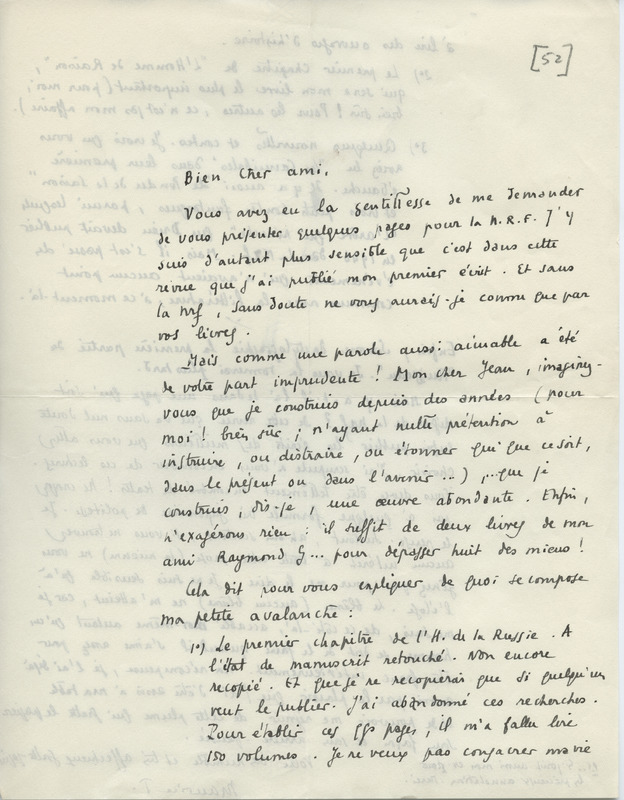 [52]
Bien cher ami,
Vous avez eu la gentillesse de me demander
de vous présenter quelques pages pour la N.R.F. J'y
suis d'autant plus sensible que c'est dans cette
revue que j'ai publié mon premier écrit. Et sans
la nrf, sans doute ne vous aurais-je connu que par
vos livres.
Mais comme une parole aussi aimable a été
de votre part imprudente ! Mon cher Jean, imaginez-
vous que je construis depuis des années (pour
moi ! bien sûr ; n'ayant nulle prétention à
instruire, ou distraire, ou étonner qui que ce soit,
dans le présent ou dans l'avenir...), ...que je
construis, dis-je, une œuvre abondante. Enfin,
n'exagérons rien : il suffit de deux livres de mon
ami Raymond G... pour dépasser huit des miens !
Cela dit pour vous expliquer de quoi se compose
ma petite avalanche :
1°) Le premier chapitre de l'H. de la Russie. A
l'état de manuscrit retouché. Non encore
recopié. Et que je ne recopierais que si quelqu'un
veut le publier. J'ai abandonné ces recherches.
Pour établir ces qqs pages, il m'a fallu lire
150 volumes. Je ne veux pas consacrer ma vie